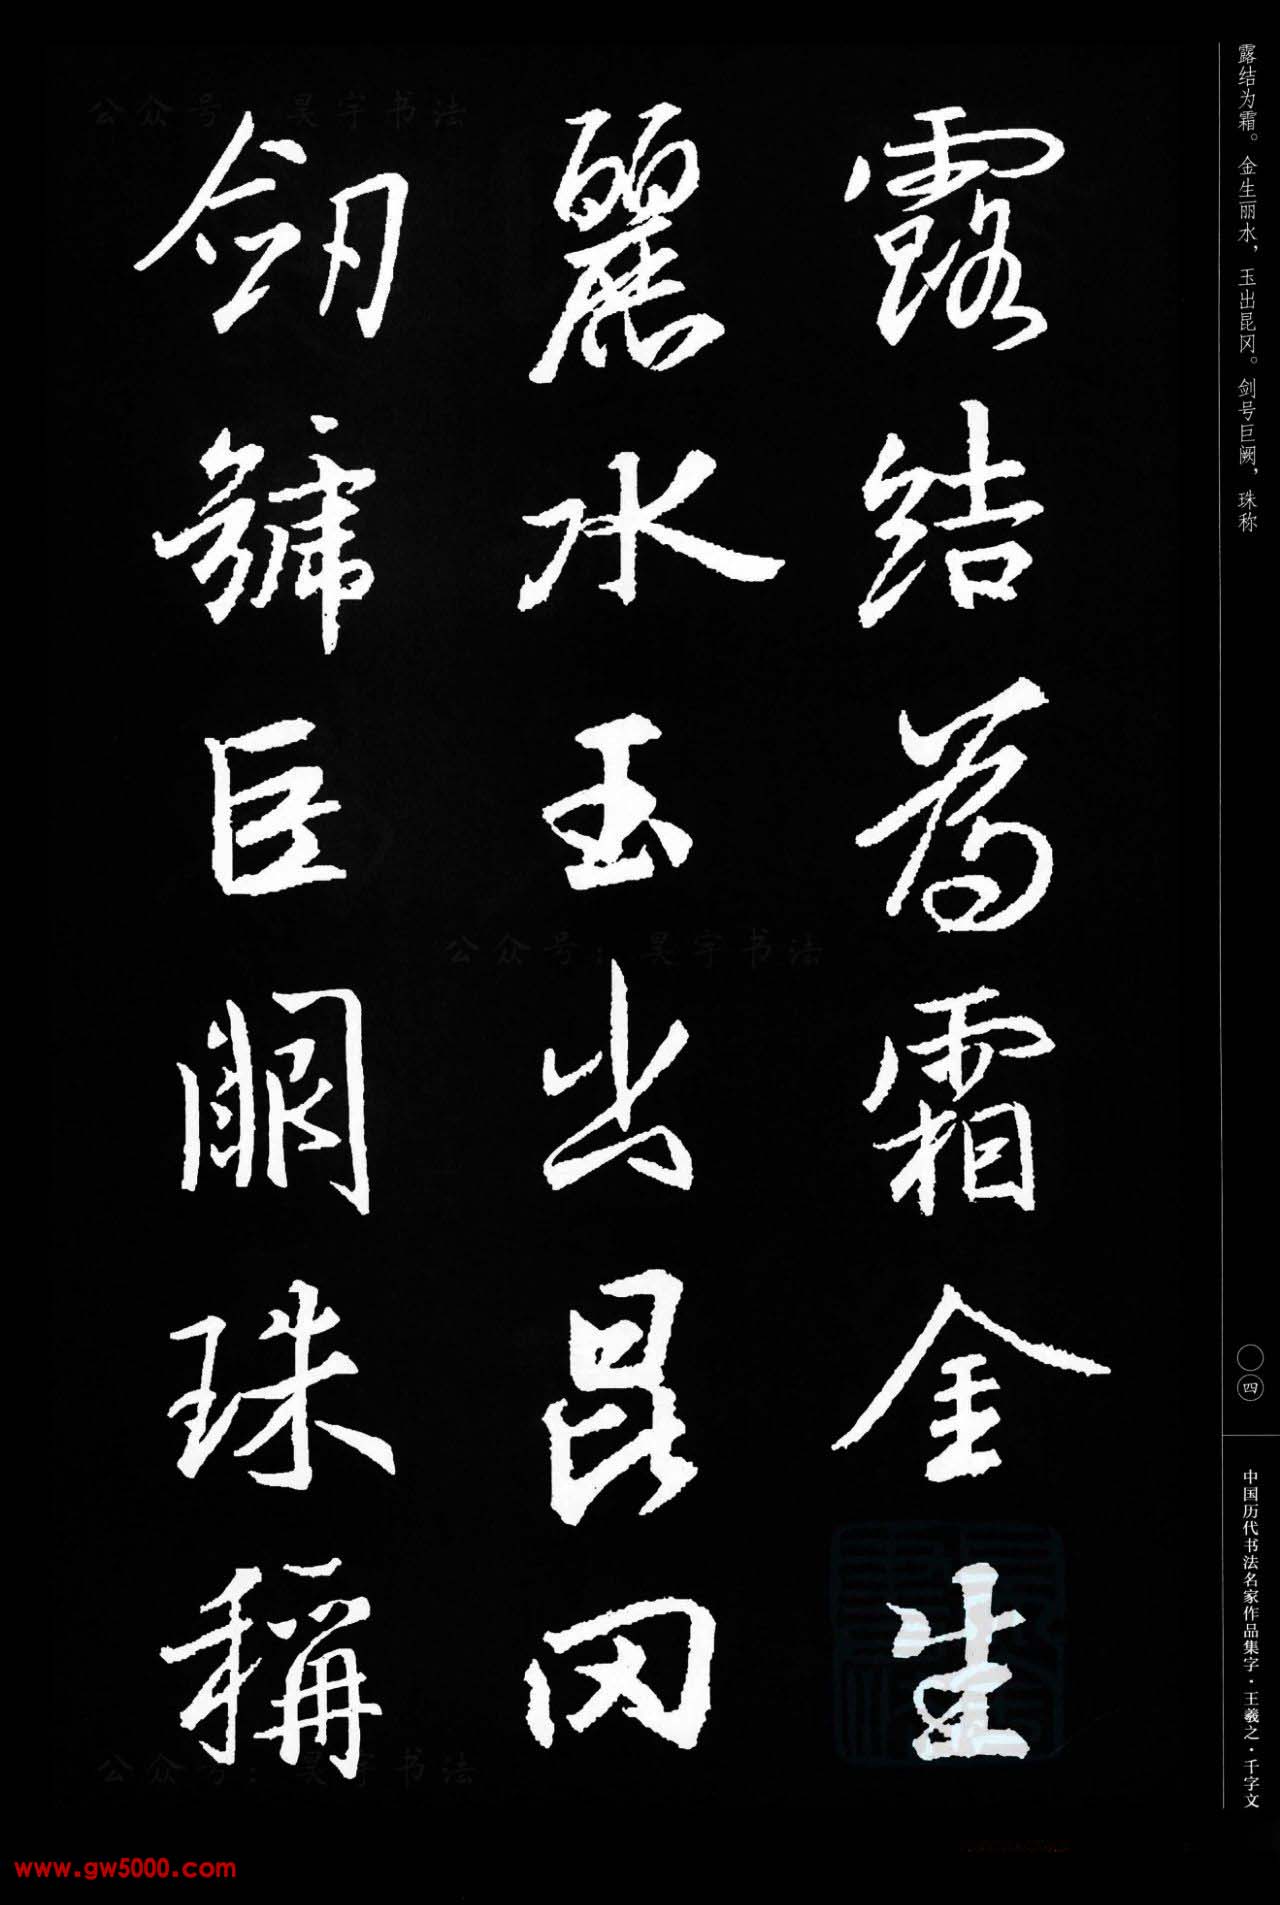 露结为霜。金生丽水，玉出昆冈。剑号巨阙，珠称
露結為霜金生
麗水玉出昆冈
劒號巨闕珠稱
〇四
中国历代书法名家作品集字·王羲之·千字文
公众号：昊宇书法
公众号：昊宇书法
公众号：昊宇书法
www.gw5000.com